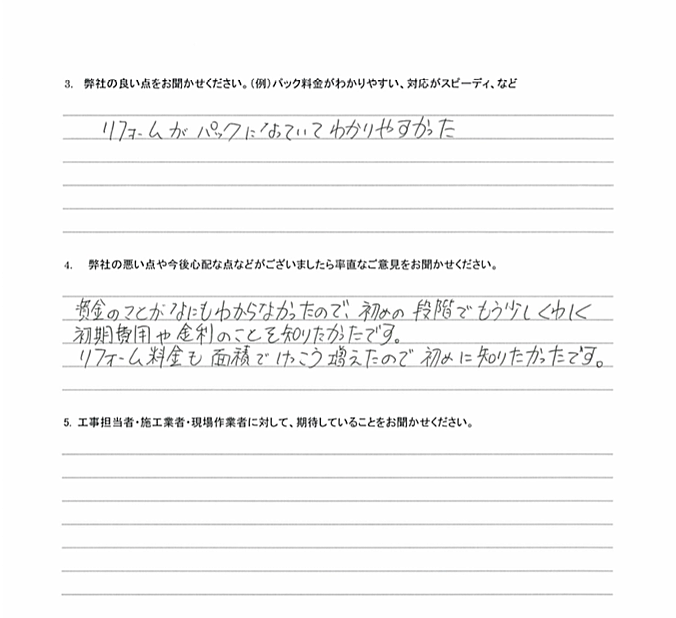 3. 弊社の良い点をお聞かせください。（例）パック料金がわかりやすい、対応がスピーディ、など
リフォームが パックになっていてわかりやすかった
4. 弊社の悪い点や今後心配な点などがございましたら率直なご意見をお聞かせください。
資金のことがなにもわからなかったので、初めの段階でもう少しくわしく
初期費用や金利のことを知りたかったです。
リフォーム料金も面積でけっこう増えたので初めに知りたかったです。
5. 工事担当者・施工業者・現場作業者に対して、期待していることをお聞かせください。